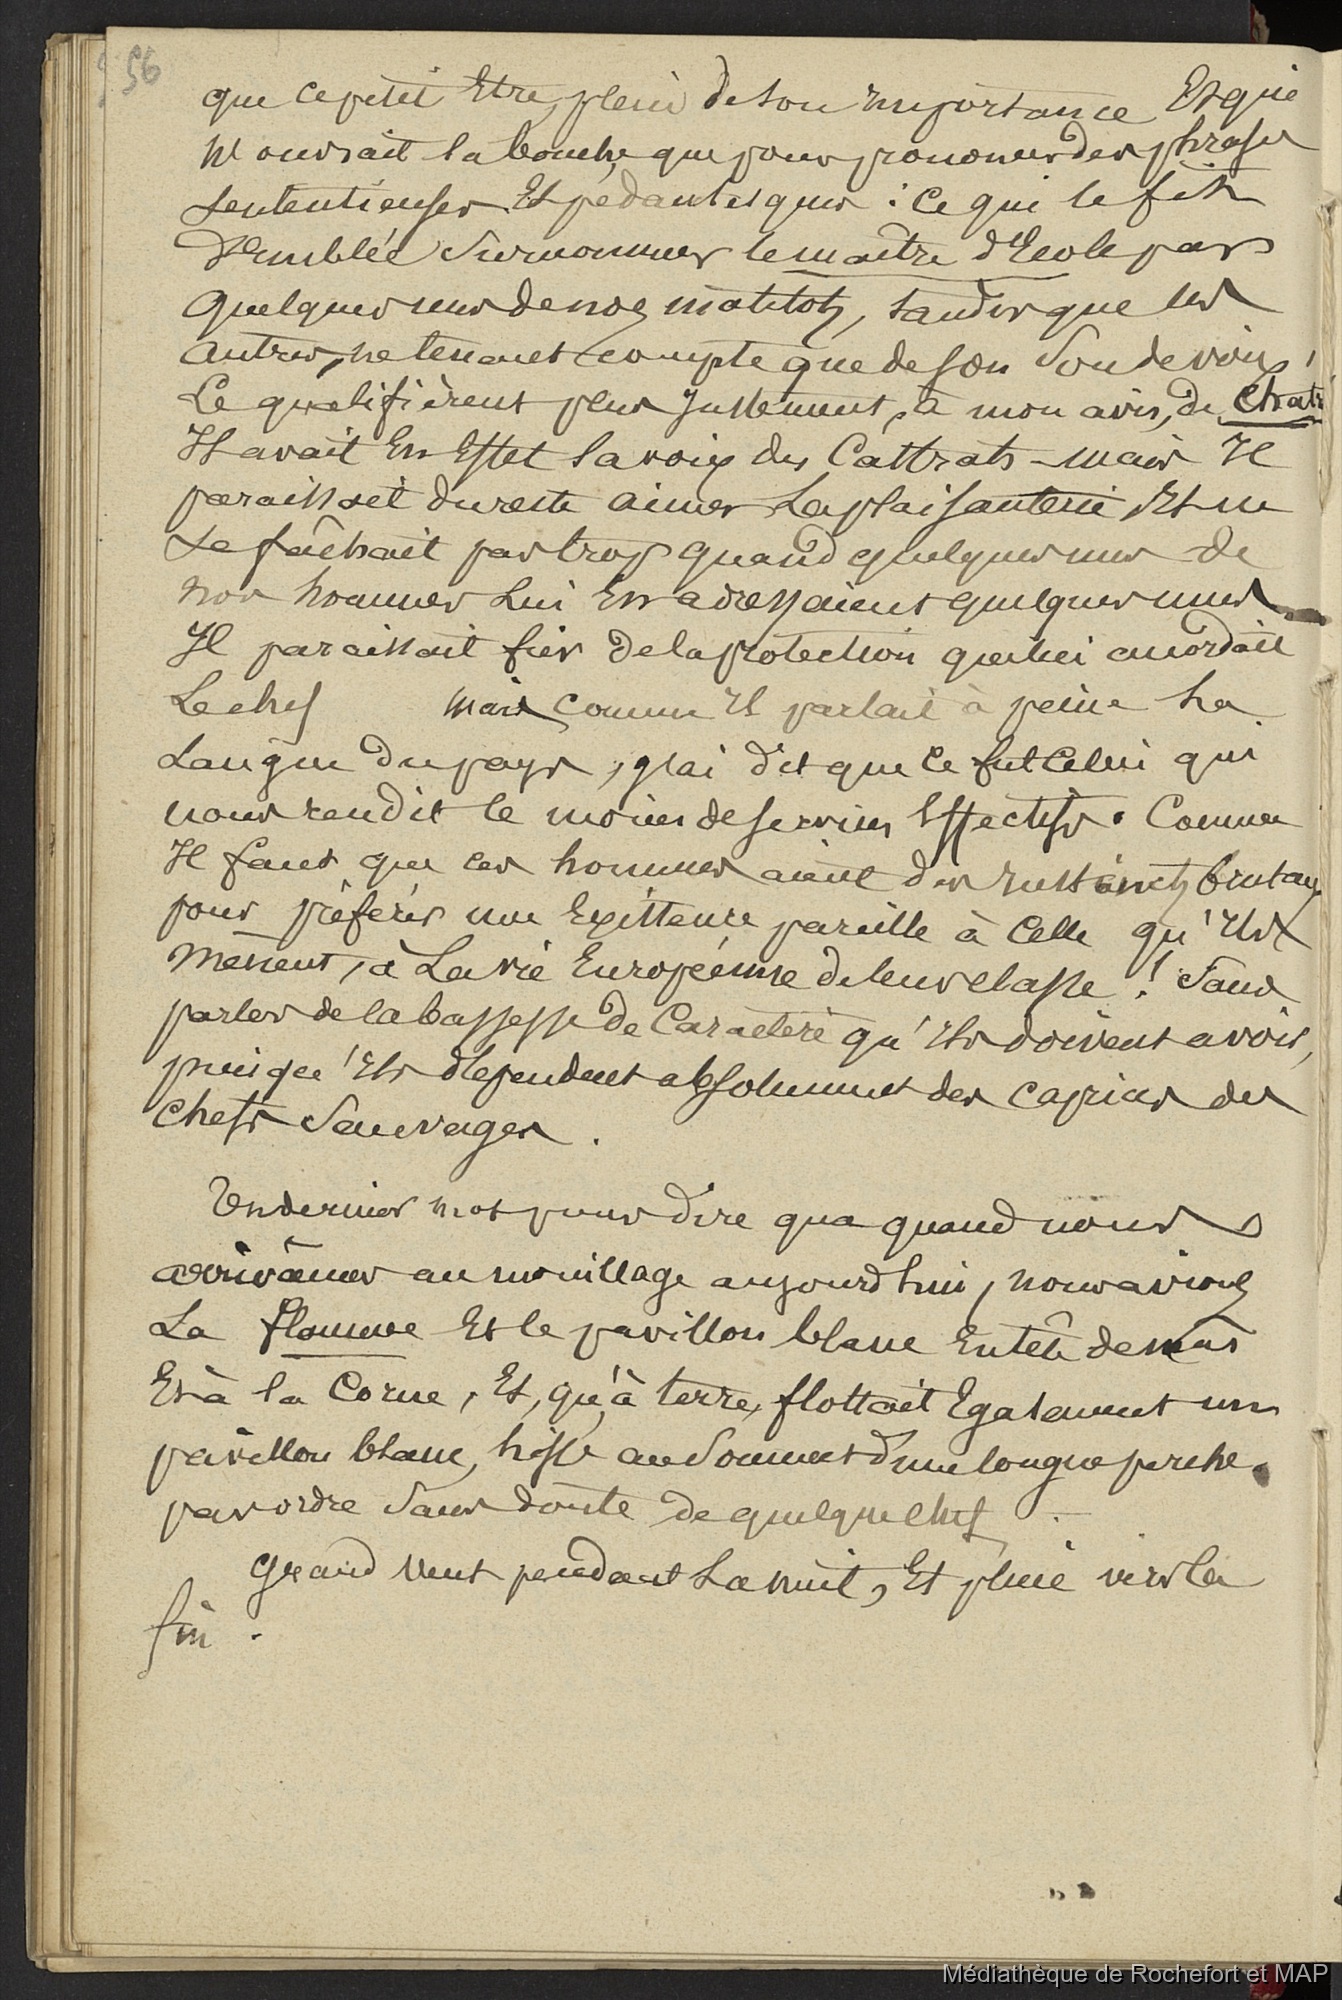 56
que ce petit Etre, plein de son Importance Et qui
N'ouvrait la bouche que pour prononcer des phrases
sententieuses Et pédantesques : ce qui le fit
D'Emblée Surnommer le maître d'Ecole par
quelques uns de nos matelots, tandis que les
autres, ne tenant compte que de son Son de voix,
Le qualifièrent plus Justement, à mon avis, de Chatré
Il avait En Effet la voix des Castrats - mais Il
paraissait du reste aimer La plaisanterie, Et ne
se fâchait pas trop quand quelques uns de
nos hommes Lui En adressaient quelques unes
Il paraissait fier de la protection que lui accordait
Le chef mais comme Il parlait à peine la
Langue du pays, j'ai dit que ce fut Celui qui
nous rendit le moins de services Effectifs. Comme
Il faut que ces hommes aient des Instincts brutaux
pour préférer une Existence pareille à Celle qu'Ils
Mènent, à La vie Européenne de leur classe ! Sans
parler de la bassesse de Caractère qu'Ils doivent avoir,
puisqu'Ils dépendent absolument des caprices des
Chefs Sauvages .
Un dernier mot pour dire que quand nous
arrivâmes au mouillage aujourd'hui, nous avions
La flamme Et le pavillon blanc En tête de mâts
Et à la Corne, Et, qu'à terre, flottait Egalement un
pavillon blanc, hissé au Sommet d'une longue perche.
par ordre Sans doute de quelque Chef
Grand Vent pendant La nuit, Et pluie vers la
fin .
Médiathèque de Rochefort et MAP